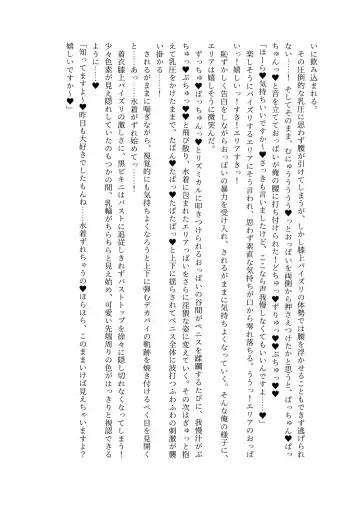 いに飲み込まれる。
その圧倒的な乳圧に思わず腰が引けてしまうが、しかし膝上パイズリの体勢では腰を浮かせることもできず逃げられ
ない……！　そしてそのまま、むにゅううううっ♥っとおっぱいを両側から押さえつけたかと思うと、ぱっちゅん♥ぱっ
ちゅんっ♥と音を立てておっぱいが俺の腰に打ち付けられた！どちゅっ♥ずりゅっ♥♥ぶちゅっ♥♥
「ほーら♥気持ちいいですか～♥さっきも言いましたけど、ここなら声我慢しなくてもいいんですよ……♥」
楽しそうにパイズリするエリアにそう言われ、思わず素直な気持ちが口から零れ落ちる。ううっ！エリアのおっぱ
いっ！嬉しいっ！すき！エリアすきっ！
恥ずかしげもなく告白しながらおっぱいの暴力を受け入れ、されるがままに気持ちよくなっていく。そんな俺の様子に、
エリアは嬉しそうに微笑んだ。
ずっちゅ♥ぱっちゅんっ♥とリズミカルに叩きつけられるおっぱいの谷間がペニスを蹂躙するたびに、我慢汁がぶ
ちゅっ♥♥ぶちゅっ♥♥と飛び散り、水着に包まれたエリアっぱいをさらに淫猥な姿に変えていく。その次はぎゅっと抱
えて乳圧をかけたままで、たぱん♥たぱっ♥たぱたぱっ♥と上下に揺らされてペニス全体に波打つふわふわの刺激が襲
い掛かる……！
されるがままに喘ぎながら、視覚的にも気持ちよくなろうと上下に弾むデカパイの軌跡を焼き付けるべく目を見開く
と……あっ……水着がずれ始めてっ……！
着衣膝上パイズリの激しさに、黒ビキニはバストに追従しきれずバストトップを徐々に隠し切れなくなってしまう！
少々色素が見え隠れしていたのもつかの間、乳輪がちらちらと見え始め、可愛い先端周りの色がはっきりと視認できる
ように……♥
「知ってますよ～♥昨日も大好きでしたもんね……水着ずれちゃうの♥ほらほら、このままいけば見えちゃいますよ？
嬉しいですか～♥」